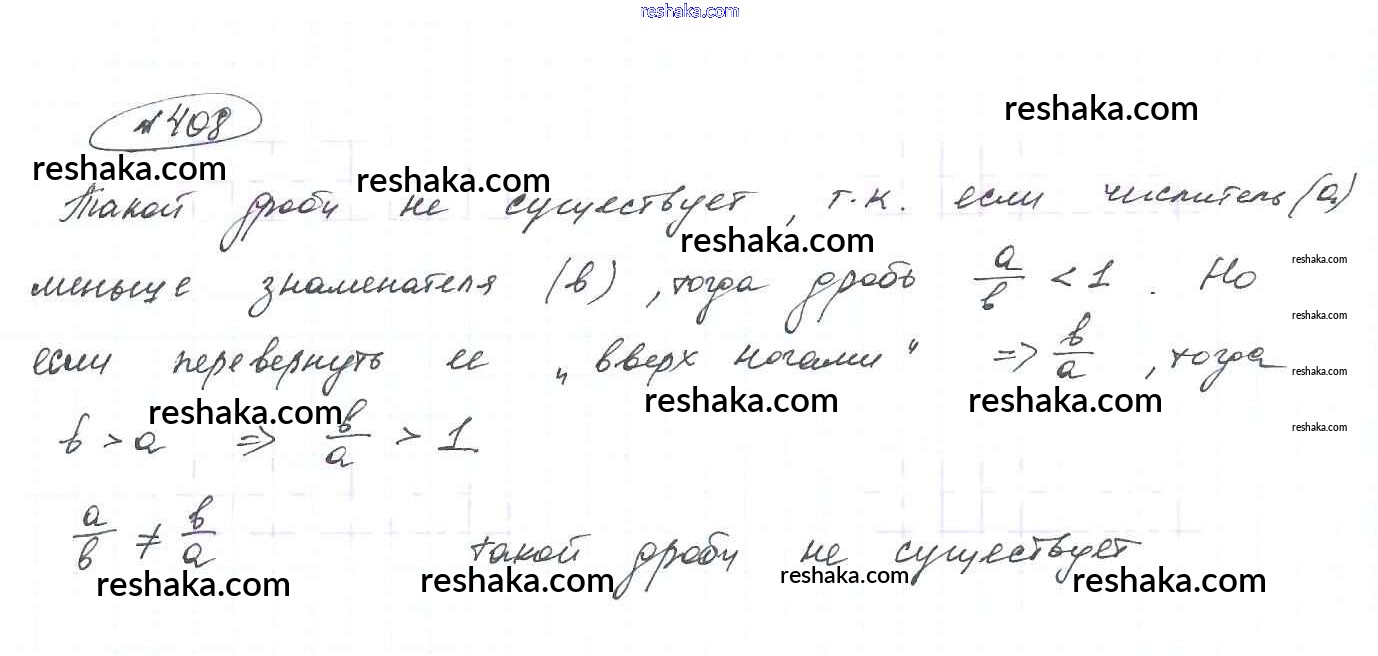 reshaka.com
№408
reshaka.com
reshaka.com reshaka.com
Такой дроби не существует, т.к. если числитель (a)
reshaka.com
меньше знаменателя (b), тогда дробь a/b < 1. Но
reshaka.com
reshaka.com
если перевернуть ее „вверх ногами“ => b/a, тогда
reshaka.com
reshaka.com reshaka.com reshaka.com
b > a => b/a > 1
reshaka.com
a/b ≠ b/a такой дроби не существует
reshaka.com reshaka.com reshaka.com reshaka.com